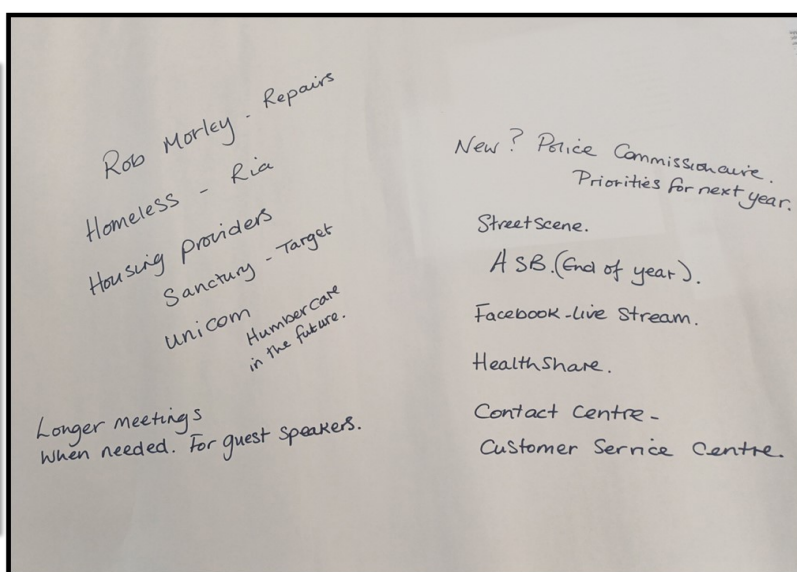 Rob Morley - Repairs
Homeless - Ria
Housing Providers
Sanctury - Target
unicom
HumberCare
in the future.
Longer meetings
When needed. For guest speakers.
New? Police Commissionaire.
Priorities for next year.
Streetscene.
ASB. (End of year).
Facebook-live Stream.
HealthShare.
Contact Centre-
Customer Service Centre.